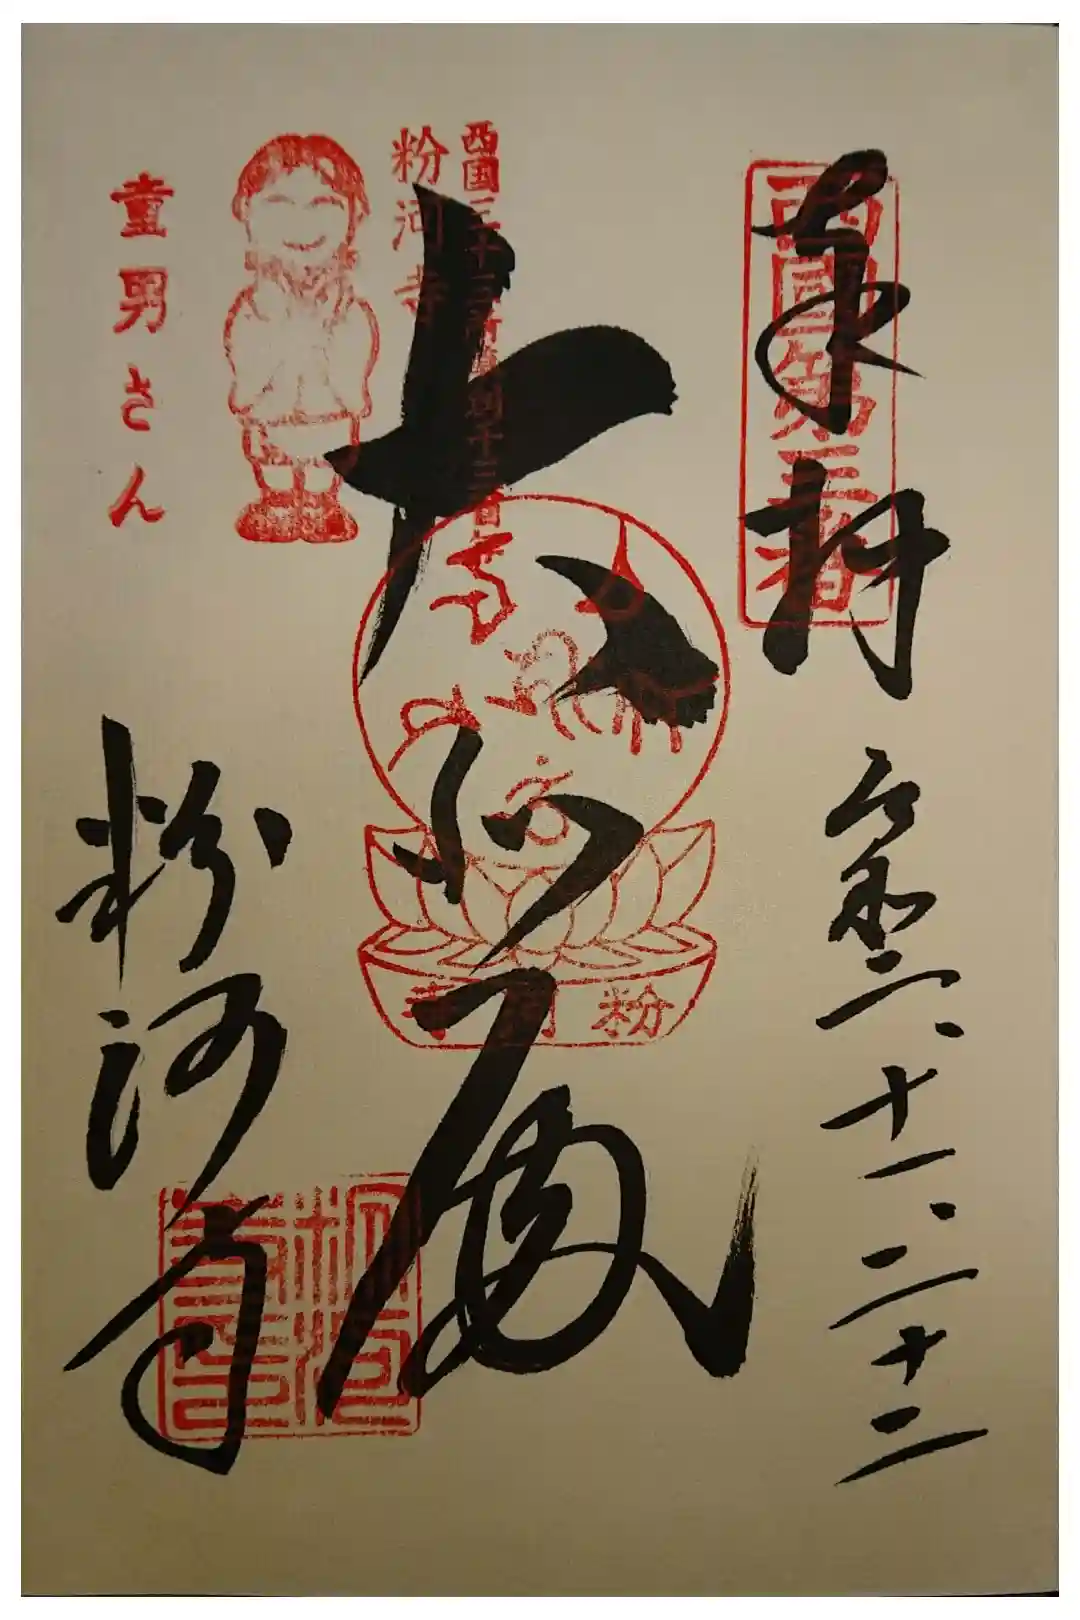 奉拝
令和二、十一、二十二
西國第三番
西国三十三所草創千三百年
粉河寺
大悲殿
粉河寺
童男さん
粉河寺